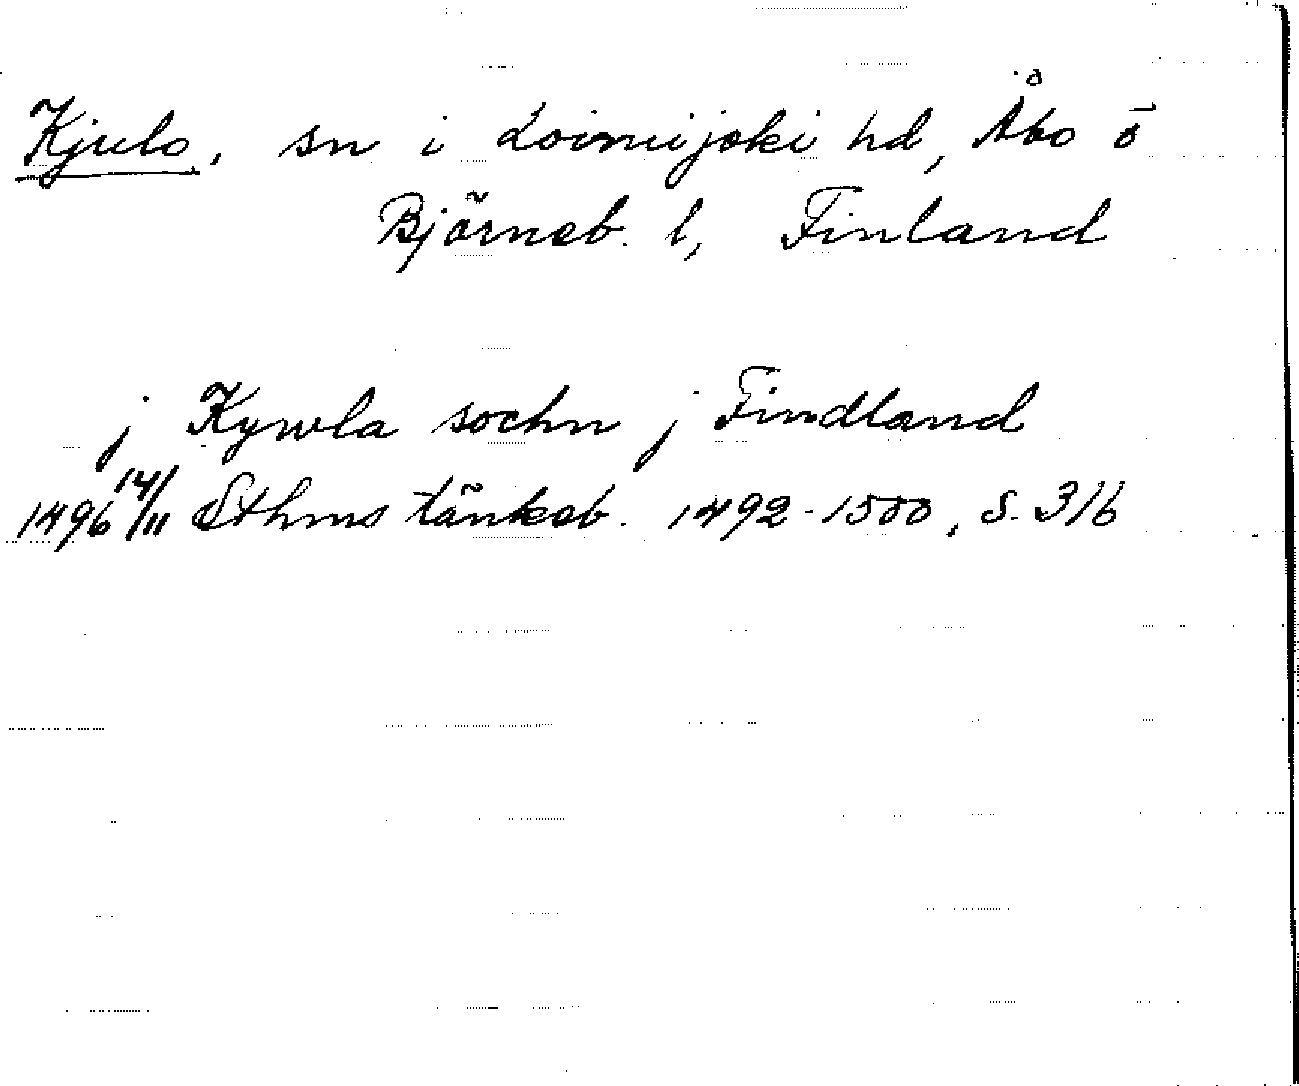 Kjulo, sn i Loimijoki hd, Åbo ō
Björneb. l, Finland
j Kywla sochn j Findland
1496 14/11 Sthms tänkeb. 1492-1500, s. 316